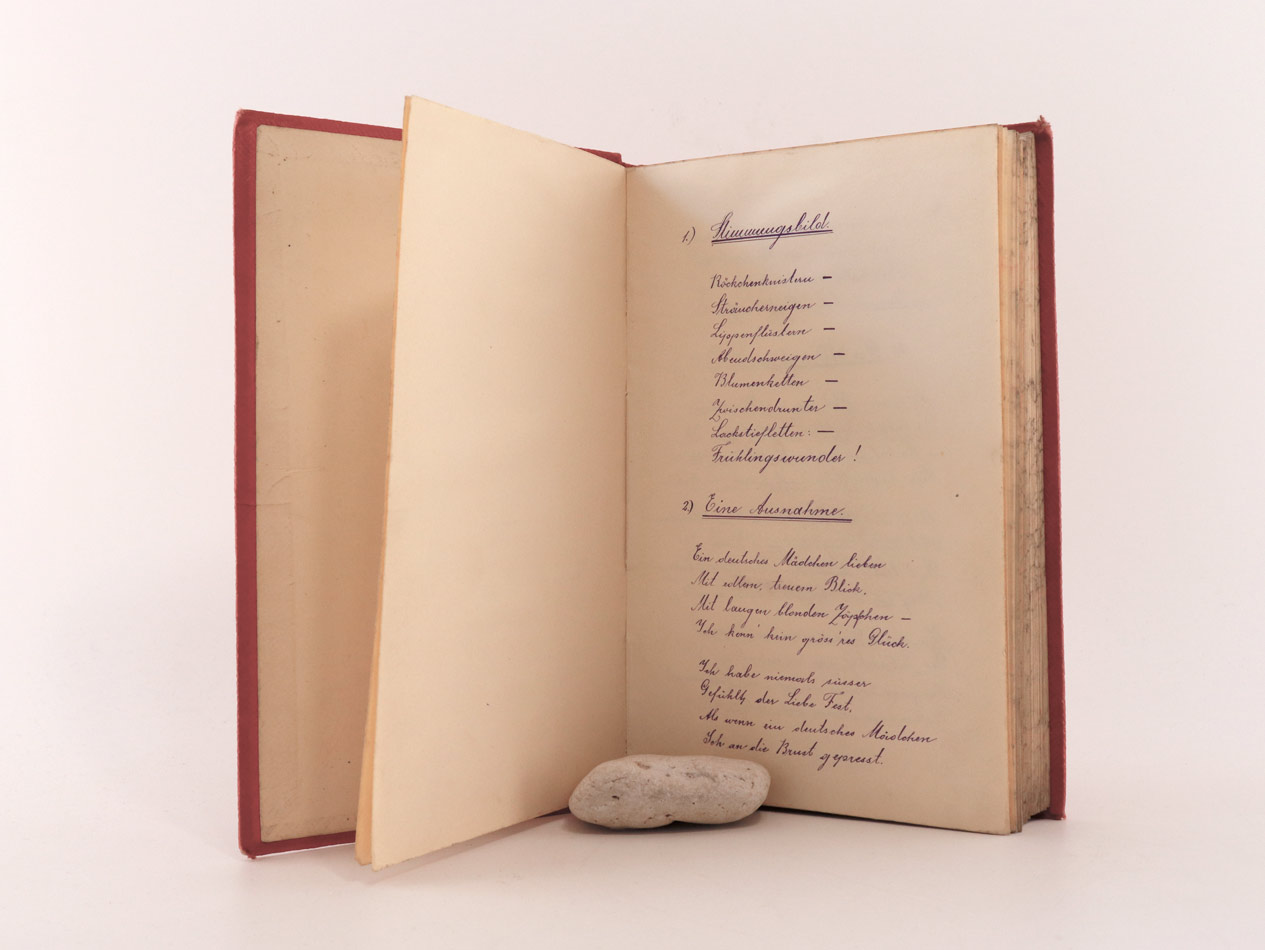 1.) Stimmungsbild.
Röckchenknistern —
Sträucherneigen —
Lippenflüstern —
Abendschweigen —
Blumenketten —
Zwischendrunter —
Lackstiefletten: —
Frühlingswunder !
2.) Eine Ausnahme.
Ein deutsches Mädchen lieben
Mit edlem, treuem Blick,
Mit langen blonden Zöpfchen —
Ich kenn' kein gröss'res Glück.
Ich habe niemals süsser
Gefühlt der Liebe Fest,
Als wenn ein deutsches Mädchen
Ich an die Brust gepresst.